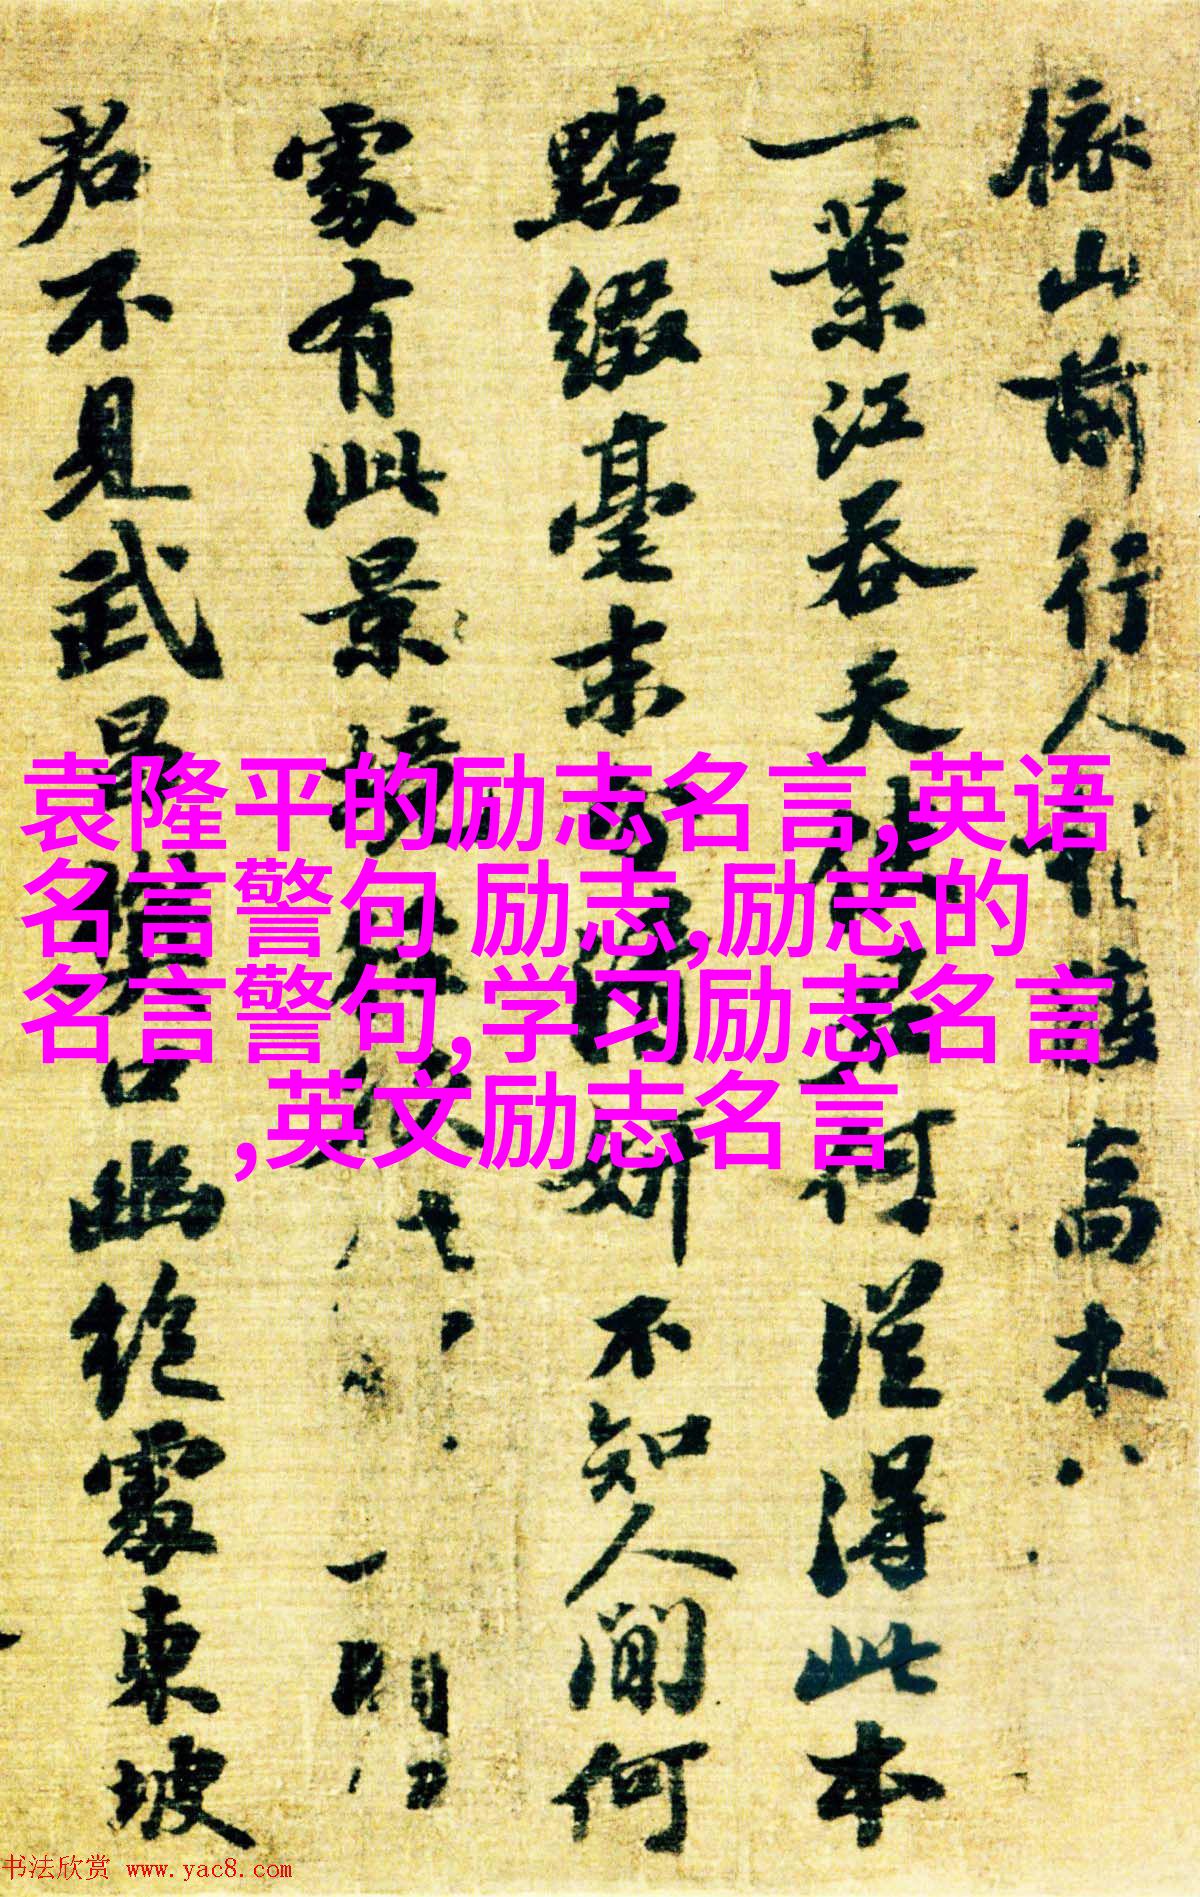 依山前行人高木
一葉江吞天使君何從得此本
點綴毫末分清妍不知人間何
處有此景徑
君不見武昌樊口幽絕處東坡
袁隆平的励志名言,英语
名言警句 励志,励志的
名言警句,学习励志名言
,英文励志名言
书法欣赏 www.yac8.com